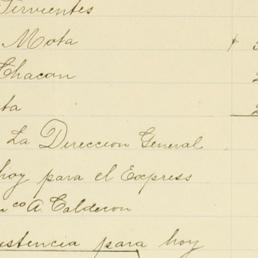 Sirvientes
Mota
Chacon
ta
La Direccion General
hoy para el Express
co A Calderon
istencia para hoy